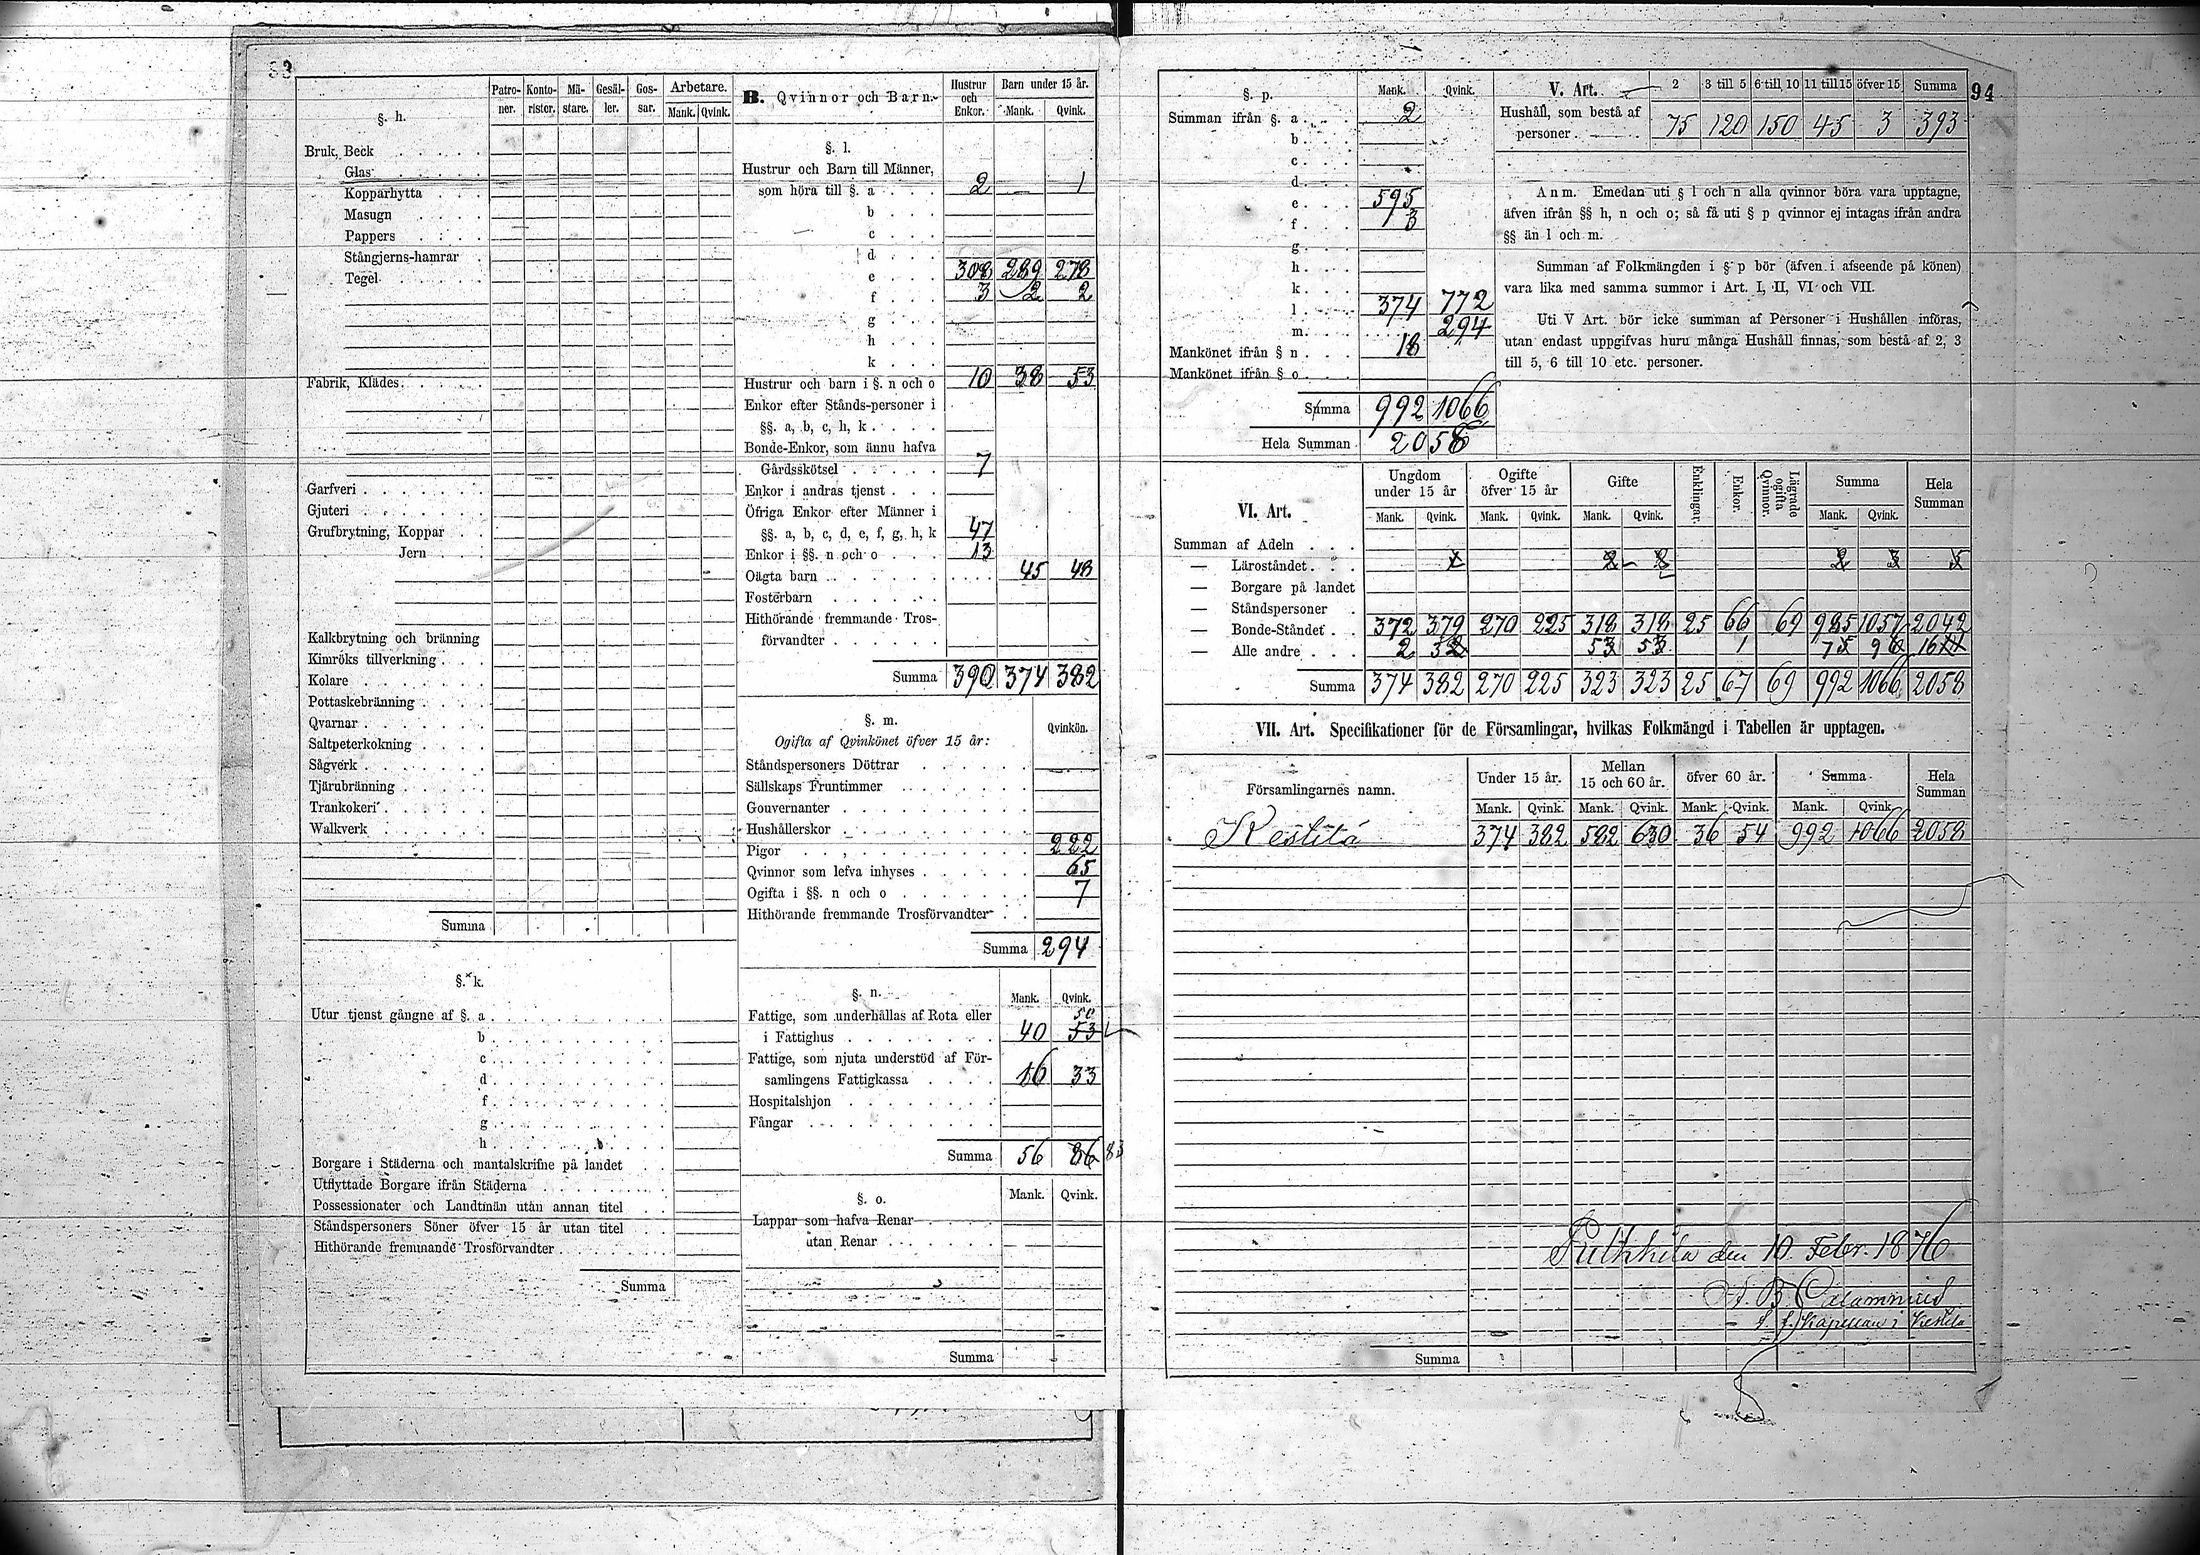 93
§. h.
Patro-ner. Konto-rister. Mä-stare. Gesäl-ler. Gos-sar. Arbetare.
Mank. Qvink.
Bruk, Beck
Glas
Kopparhytta
Masugn
Pappers
Stångjerns-hamrar
Tegel
Fabrik, Klädes
Garfveri
Gjuteri
Grufbrytning, Koppar
Jern
Kalkbrytning och bränning
Kimröks tillverkning
Kolare
Pottaskebränning
Qvarnar
Saltpeterkokning
Sågverk
Tjärubränning
Trankokeri
Walkverk
Summa
§. k.
Utur tjenst gångne af §. a
b
c
d
f
g
h
Borgare i Städerna och mantalskrifne på landet
Utflyttade Borgare ifrån Städerna
Possessionater och Landtmän utan annan titel
Ståndspersoners Söner öfver 15 år utan titel
Hithörande fremmande Trosförvandter
Summa
B. Qvinnor och Barn.
Hustrur och Enkor. Barn under 15 år.
Mank. Qvink.
§. l.
Hustrur och Barn till Männer,
som höra till §. a 2 — 1
b
c
d
e 308 289 278
f 3 2 2
g
h
k
Hustrur och barn i §. n och o 10 38 53
Enkor efter Stånds-personer i
§§. a, b, c, h, k
Bonde-Enkor, som ännu hafva
Gårdsskötsel 7
Enkor i andras tjenst
Öfriga Enkor efter Männer i
§§. a, b, c, d, e, f, g, h, k 47
Enkor i §§. n och o 13
Oägta barn 45 48
Fosterbarn
Hithörande fremmande Tros-
förvandter
Summa 390 374 382
§. m.
Ogifta af Qvinkönet öfver 15 år: Qvinkön.
Ståndspersoners Döttrar
Sällskaps Fruntimmer
Gouvernanter
Hushållerskor
Pigor 222
Qvinnor som lefva inhyses 65
Ogifta i §§. n och o 7
Hithörande fremmande Trosförvandter
Summa 294
§. n. Mank. Qvink.
Fattige, som underhållas af Rota eller 50
i Fattighus 40 53
Fattige, som njuta understöd af För-
samlingens Fattigkassa 16 33
Hospitalshjon
Fångar
Summa 56 86 83
§. o. Mank. Qvink.
Lappar som hafva Renar
utan Renar
Summa
94
§. p. Mank. Qvink.
Summan ifrån §. a 2
b
c
d
e 595
f 3
g
h
k
l 374 772
m. 294
Mankönet ifrån § n 18
Mankönet ifrån § o
Summa 992 1066
Hela Summan 2058
V. Art. 2 3 till 5 6 till 10 11 till 15 öfver 15 Summa
Hushåll, som bestå af
personer 75 120 150 45 3 393
Anm. Emedan uti § l och n alla qvinnor böra vara upptagne,
äfven ifrån §§ h, n och o; så få uti § p qvinnor ej intagas ifrån andra
§§ än l och m.
Summan af Folkmängden i § p bör (äfven i afseende på könen)
vara lika med samma summor i Art. I, II, VI och VII.
Uti V Art. bör icke summan af Personer i Hushållen införas,
utan endast uppgifvas huru många Hushåll finnas, som bestå af 2, 3
till 5, 6 till 10 etc. personer.
VI. Art.
Ungdom under 15 år Ogifte öfver 15 år Gifte Enklingar. Enkor. Lägrade ogifta Qvinnor. Summa Hela Summan
Mank. Qvink. Mank. Qvink. Mank. Qvink. Mank. Qvink.
Summan af Adeln
— Läroståndet 2 2 2 3 5
— Borgare på landet
— Ståndspersoner
— Bonde-Ståndet 372 379 270 225 318 318 25 66 69 985 1057 2042
— Alle andre 2 3 5 5 1 7 9 16
Summa 374 382 270 225 323 323 25 67 69 992 1066 2058
VII. Art. Specifikationer för de Församlingar, hvilkas Folkmängd i Tabellen är upptagen.
Församlingarnes namn.
Under 15 år. Mellan 15 och 60 år. öfver 60 år. Summa Hela Summan
Mank. Qvink. Mank. Qvink. Mank. Qvink. Mank. Qvink.
Kestilä 374 382 582 630 36 54 992 1066 2058
Pulkkila den 10 Febr. 1876
B. Calamnius
Kapellan i Kestilä
Summa